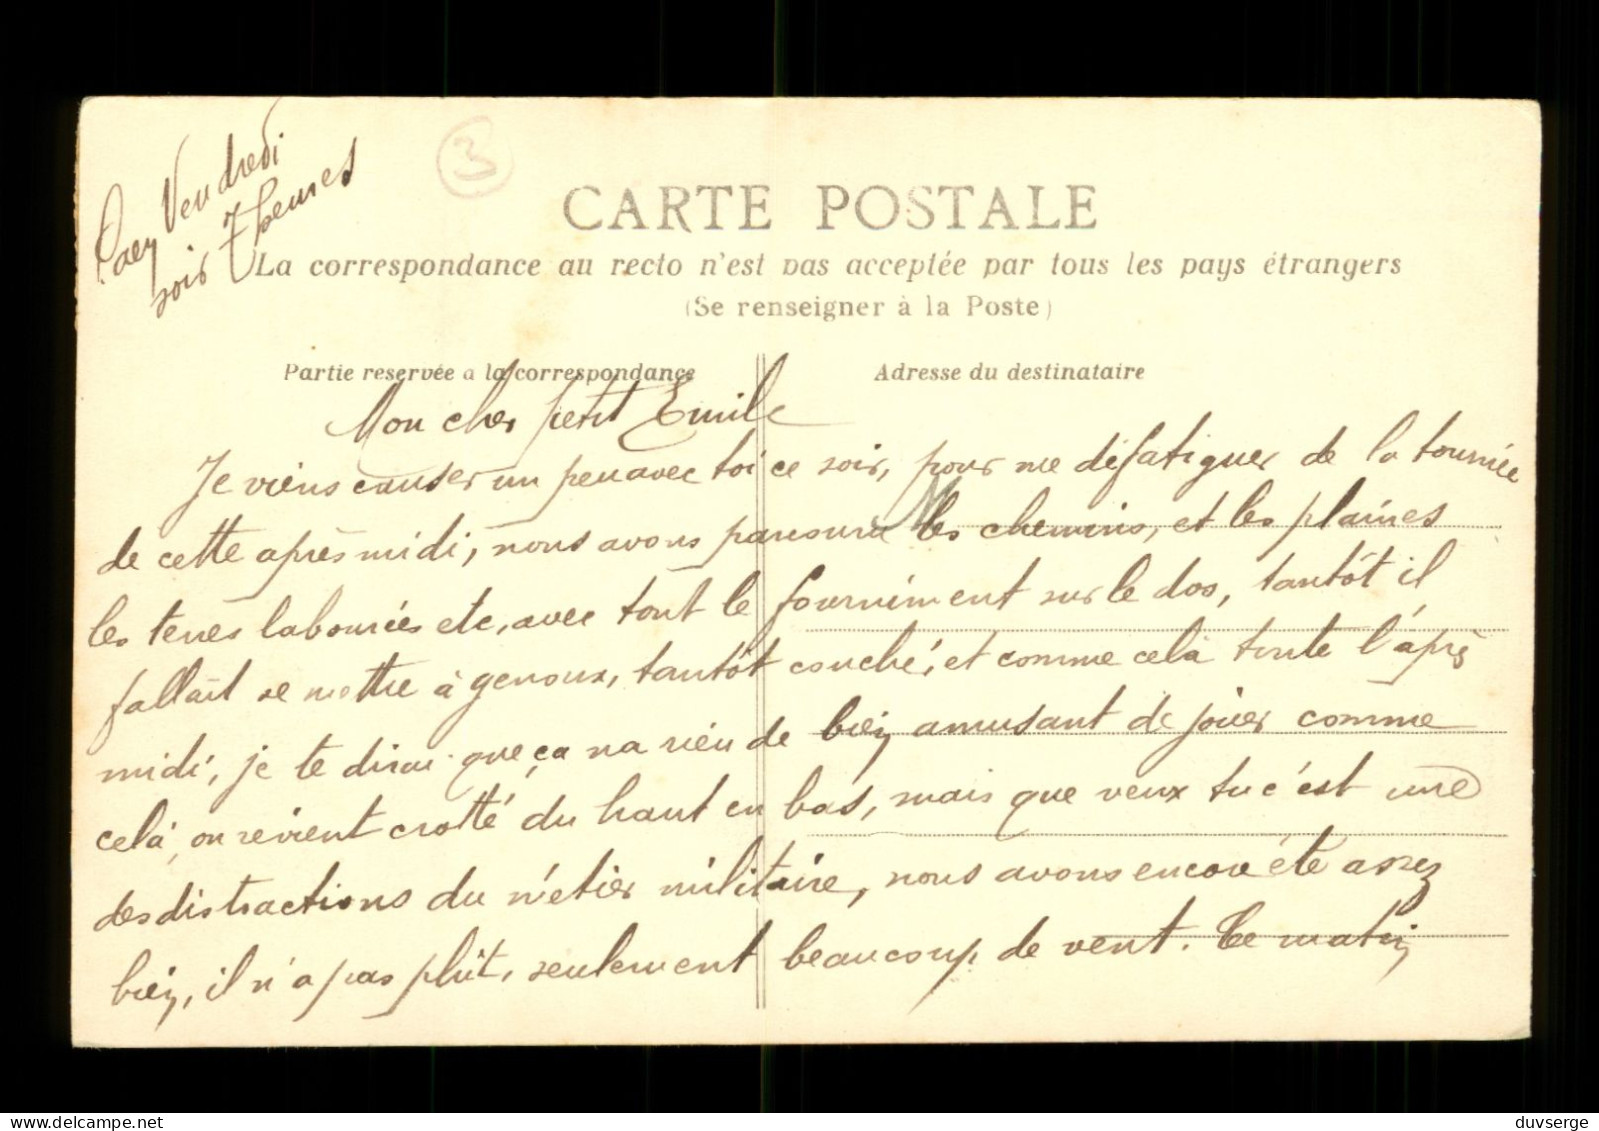 Caen Vendredi
soir 7 heures
3
CARTE POSTALE
La correspondance au recto n'est pas acceptée par tous les pays étrangers
(Se renseigner à la Poste)
Partie reservée a la correspondance
Adresse du destinataire
Mon cher petit Emile
Je viens causer un peu avec toi ce soir, pour me défatiguer de la tournée
de cette après midi, nous avons parcouru les chemins, et les plaines
les terres labourées etc, avec tout le fourniment sur le dos, tantôt il
fallait se mettre à genoux, tantôt couché, et comme celà toute l'après
midi, je te dirai que ça na rien de bien amusant de jouer comme
celà, on revient crotté du haut en bas, mais que veux tu c'est une
des distractions du métier militaire, nous avons encore été assez
bien, il n'a pas plut, seulement beaucoup de vent. Ce matin
www.delcampe.net
duvserge